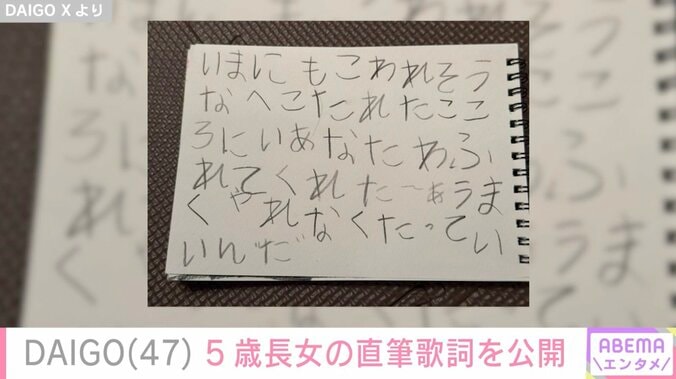 DAIGO Xより
いまにもこわれそう
なへこたれたここ
ろにいあなたわふ
れてくれた〜ぁうま
くやれなくたってい
いんだ
DAIGO(47) 5歳長女の直筆歌詞を公開
ABEMA
エンタメ